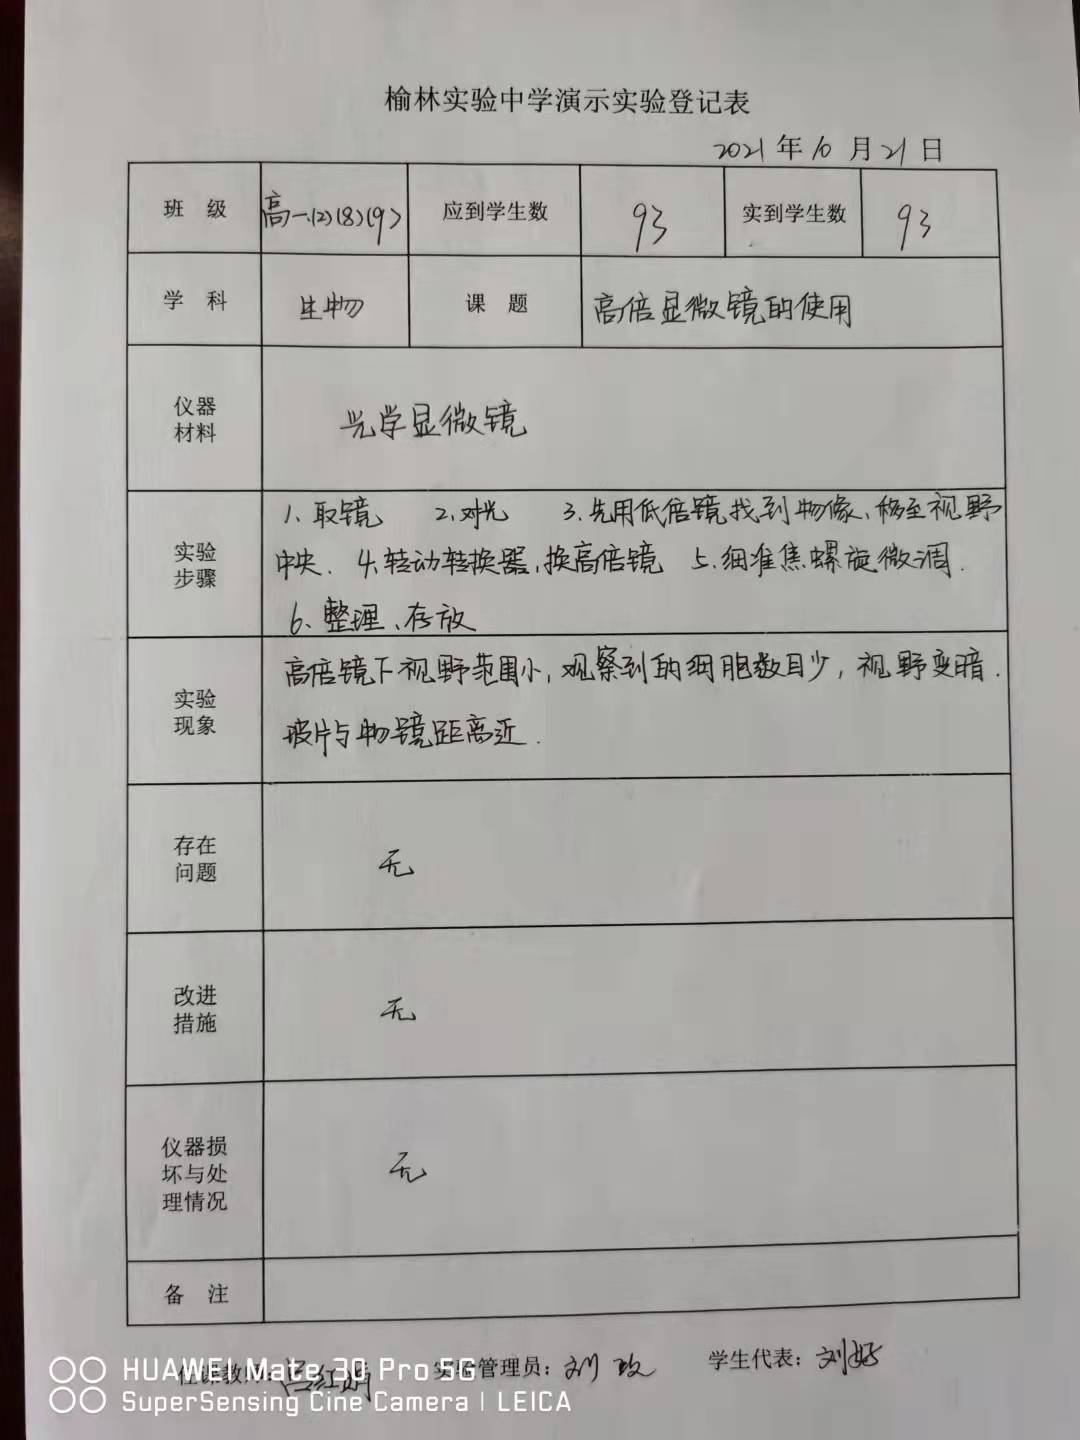 榆林实验中学演示实验登记表
2021年10月21日
班 级 高一(2)(8)(9) 应到学生数 93 实到学生数 93
学 科 生物 课 题 高倍显微镜的使用
仪器
材料
光学显微镜
实验
步骤
1、取镜 2、对光 3、先用低倍镜找到物像、移至视野
中央. 4、转动转换器,换高倍镜 5、细准焦螺旋微调.
6、整理、存放
实验
现象
高倍镜下视野范围小,观察到的细胞数目少,视野变暗.
玻片与物镜距离近.
存在
问题
无
改进
措施
无
仪器损
坏与处
理情况
无
备 注
任课教师: 吕红娟 实验管理员: 刘玫 学生代表: 刘好
HUAWEI Mate 30 Pro 5G
SuperSensing Cine Camera | LEICA